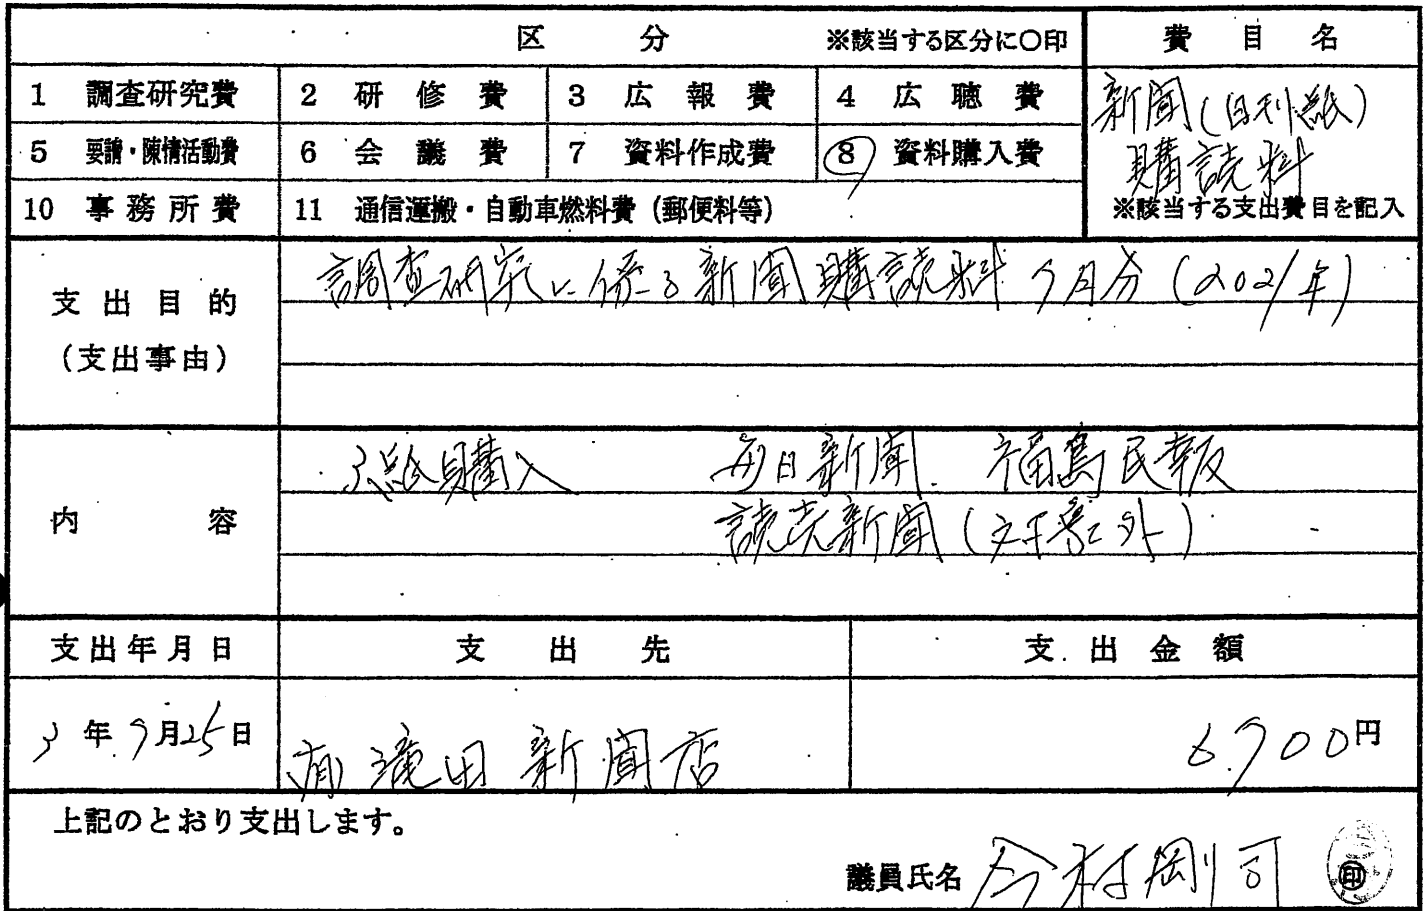 区 分 ※該当する区分に〇印 費 目 名
1 調査研究費 2 研 修 費 3 広 報 費 4 広 聴 費
新聞(日刊紙)
5 要請・陳情活動費 6 会 議 費 7 資料作成費 8 資料購入費
購読料
10 事 務 所 費 11 通信運搬・自動車燃料費(郵便料等) ※該当する支出費目を記入
支 出 目 的
(支出事由)
調査研究に係る新聞購読料 9月分(2021年)
内 容
3紙購入 毎日新聞. 福島民報
読売新聞( 外)
支出年月日 支 出 先 支 出 金 額
3 年 9月25日 (有)滝田新聞店 6,900円
上記のとおり支出します。
議員氏名 今村剛司 印